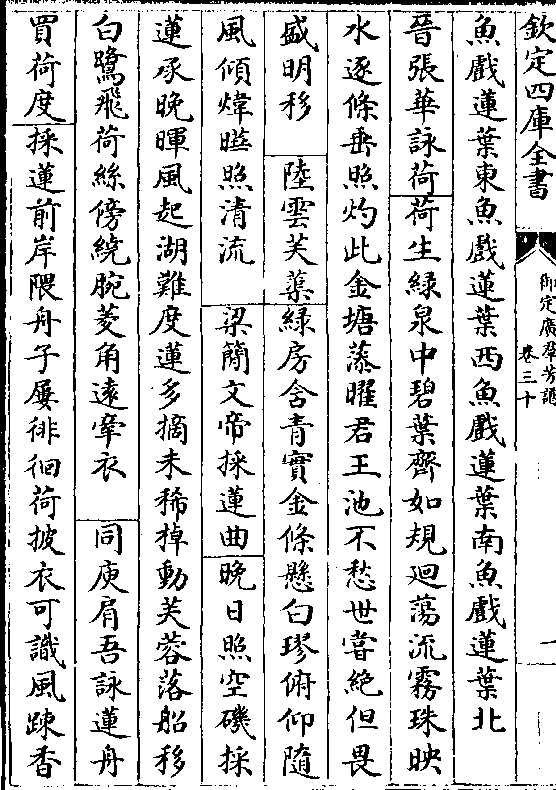 欽定四庫全書
御定廣羣芳譜
卷三十
一
魚戲蓮葉東魚戲蓮葉西魚戲蓮葉南魚戲蓮葉北
晉張華詠荷荷生綠泉中碧葉齊如規迴蕩流霧珠映
水逐條垂照灼此金塘藻曜君王池不愁世嘗絶但畏
盛明移 陸雲芙蕖綠房含青實金條懸白璆俯仰隨
風傾煒曄照清流 梁簡文帝採蓮曲晚日照空磯採
蓮承晚暉風起湖難度蓮多摘未稀棹動芙蓉落船移
白鷺飛荷絲傍繞腕菱角遠牽衣 同庾肩吾詠蓮舟
買荷度採蓮前岸隈舟子屢徘徊荷披衣可識風踈香